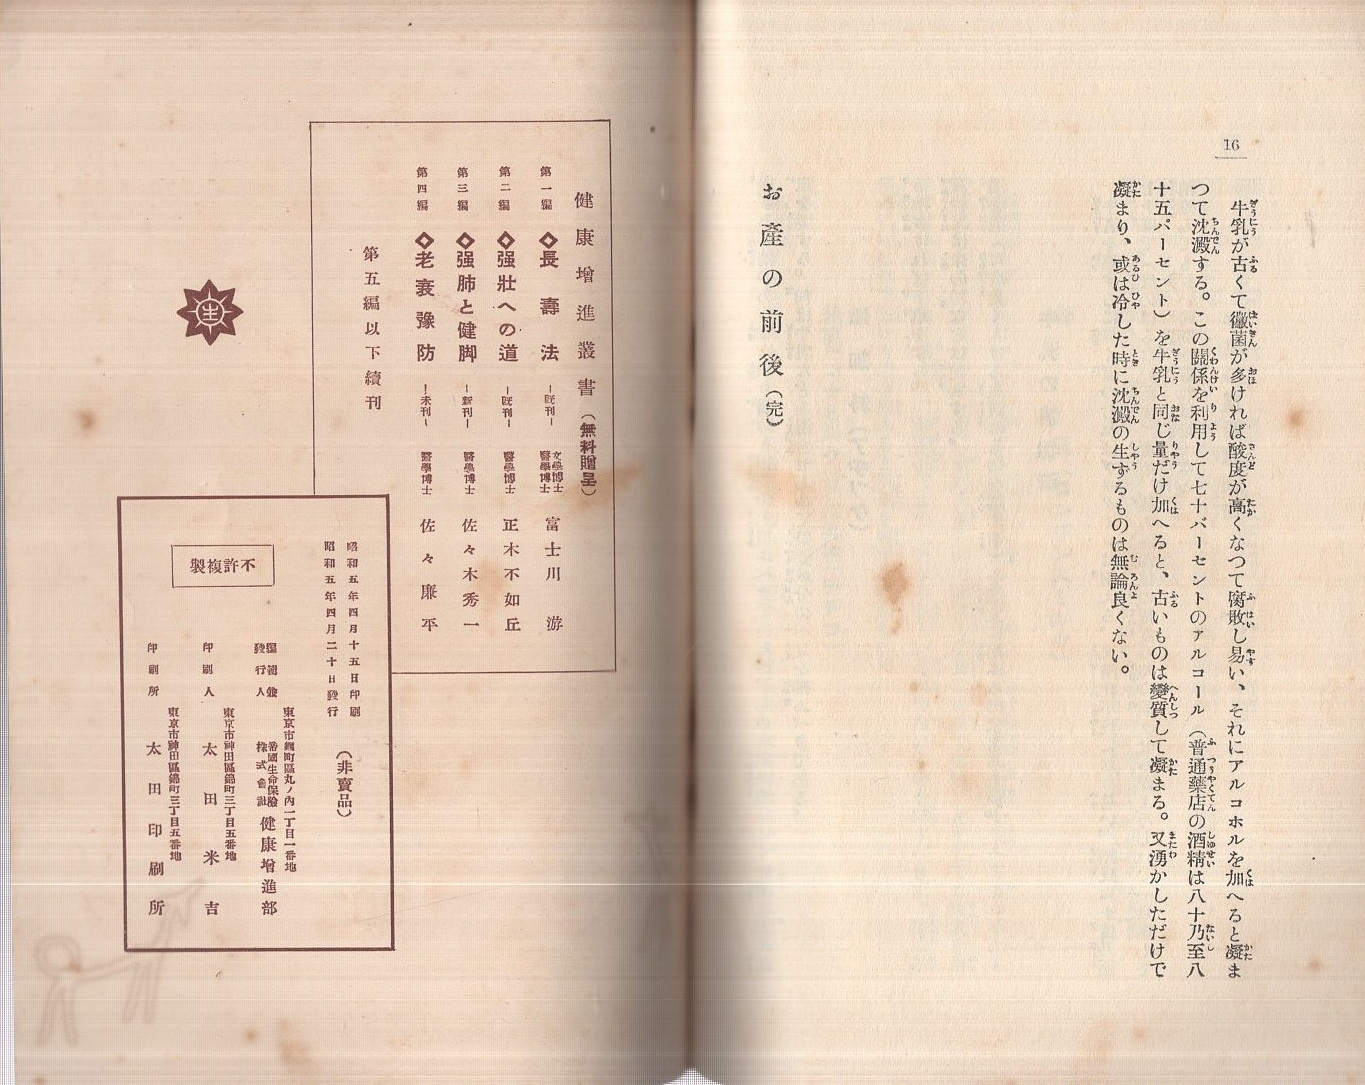 16
牛乳が古くて黴菌が多ければ酸度が高くなつて腐敗し易い、それにアルコホルを加へると凝ま
つて沈澱する。この關係を利用して七十パーセントのアルコール（普通藥店の酒精は八十乃至八
十五パーセント）を牛乳と同じ量だけ加へると、古いものは變質して凝まる。又湧かしただけで
凝まり、或は冷した時に沈澱の生ずるものは無論良くない。
お産の前後（完）
健康增進叢書（無料贈呈）
第一編 ◇長壽法 ―既刊― 文學博士 醫學博士 富士川游
第二編 ◇强壯への道 ―既刊― 醫學博士 正木不如丘
第三編 ◇强肺と健脚 ―新刊― 醫學博士 佐々木秀一
第四編 ◇老衰豫防 ―未刊― 醫學博士 佐々廉平
第五編以下續刊
生
昭和五年四月十五日印刷
昭和五年四月二十日發行
（非賣品）
不許複製
編輯兼發行人
東京市麴町區丸ノ內一丁目一番地
帝國生命保險株式會社 健康增進部
印刷人
東京市神田區錦町三丁目五番地
太田米吉
印刷所
東京市神田區錦町三丁目五番地
太田印刷所